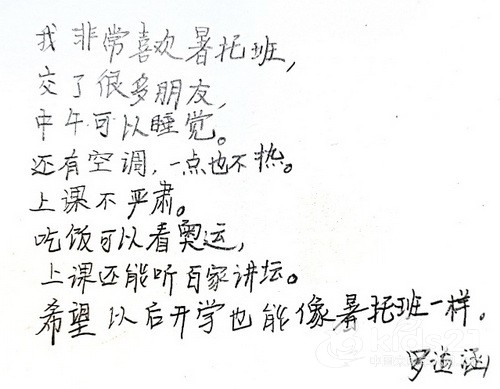 我非常喜欢暑托班,
交了很多朋友,
中午可以睡觉。
还有空调,一点也不热。
上课不严肃。
吃饭可以看奥运,
上课还能听百家讲坛。
希望以后开学也能像暑托班一样。
罗涵
kids21